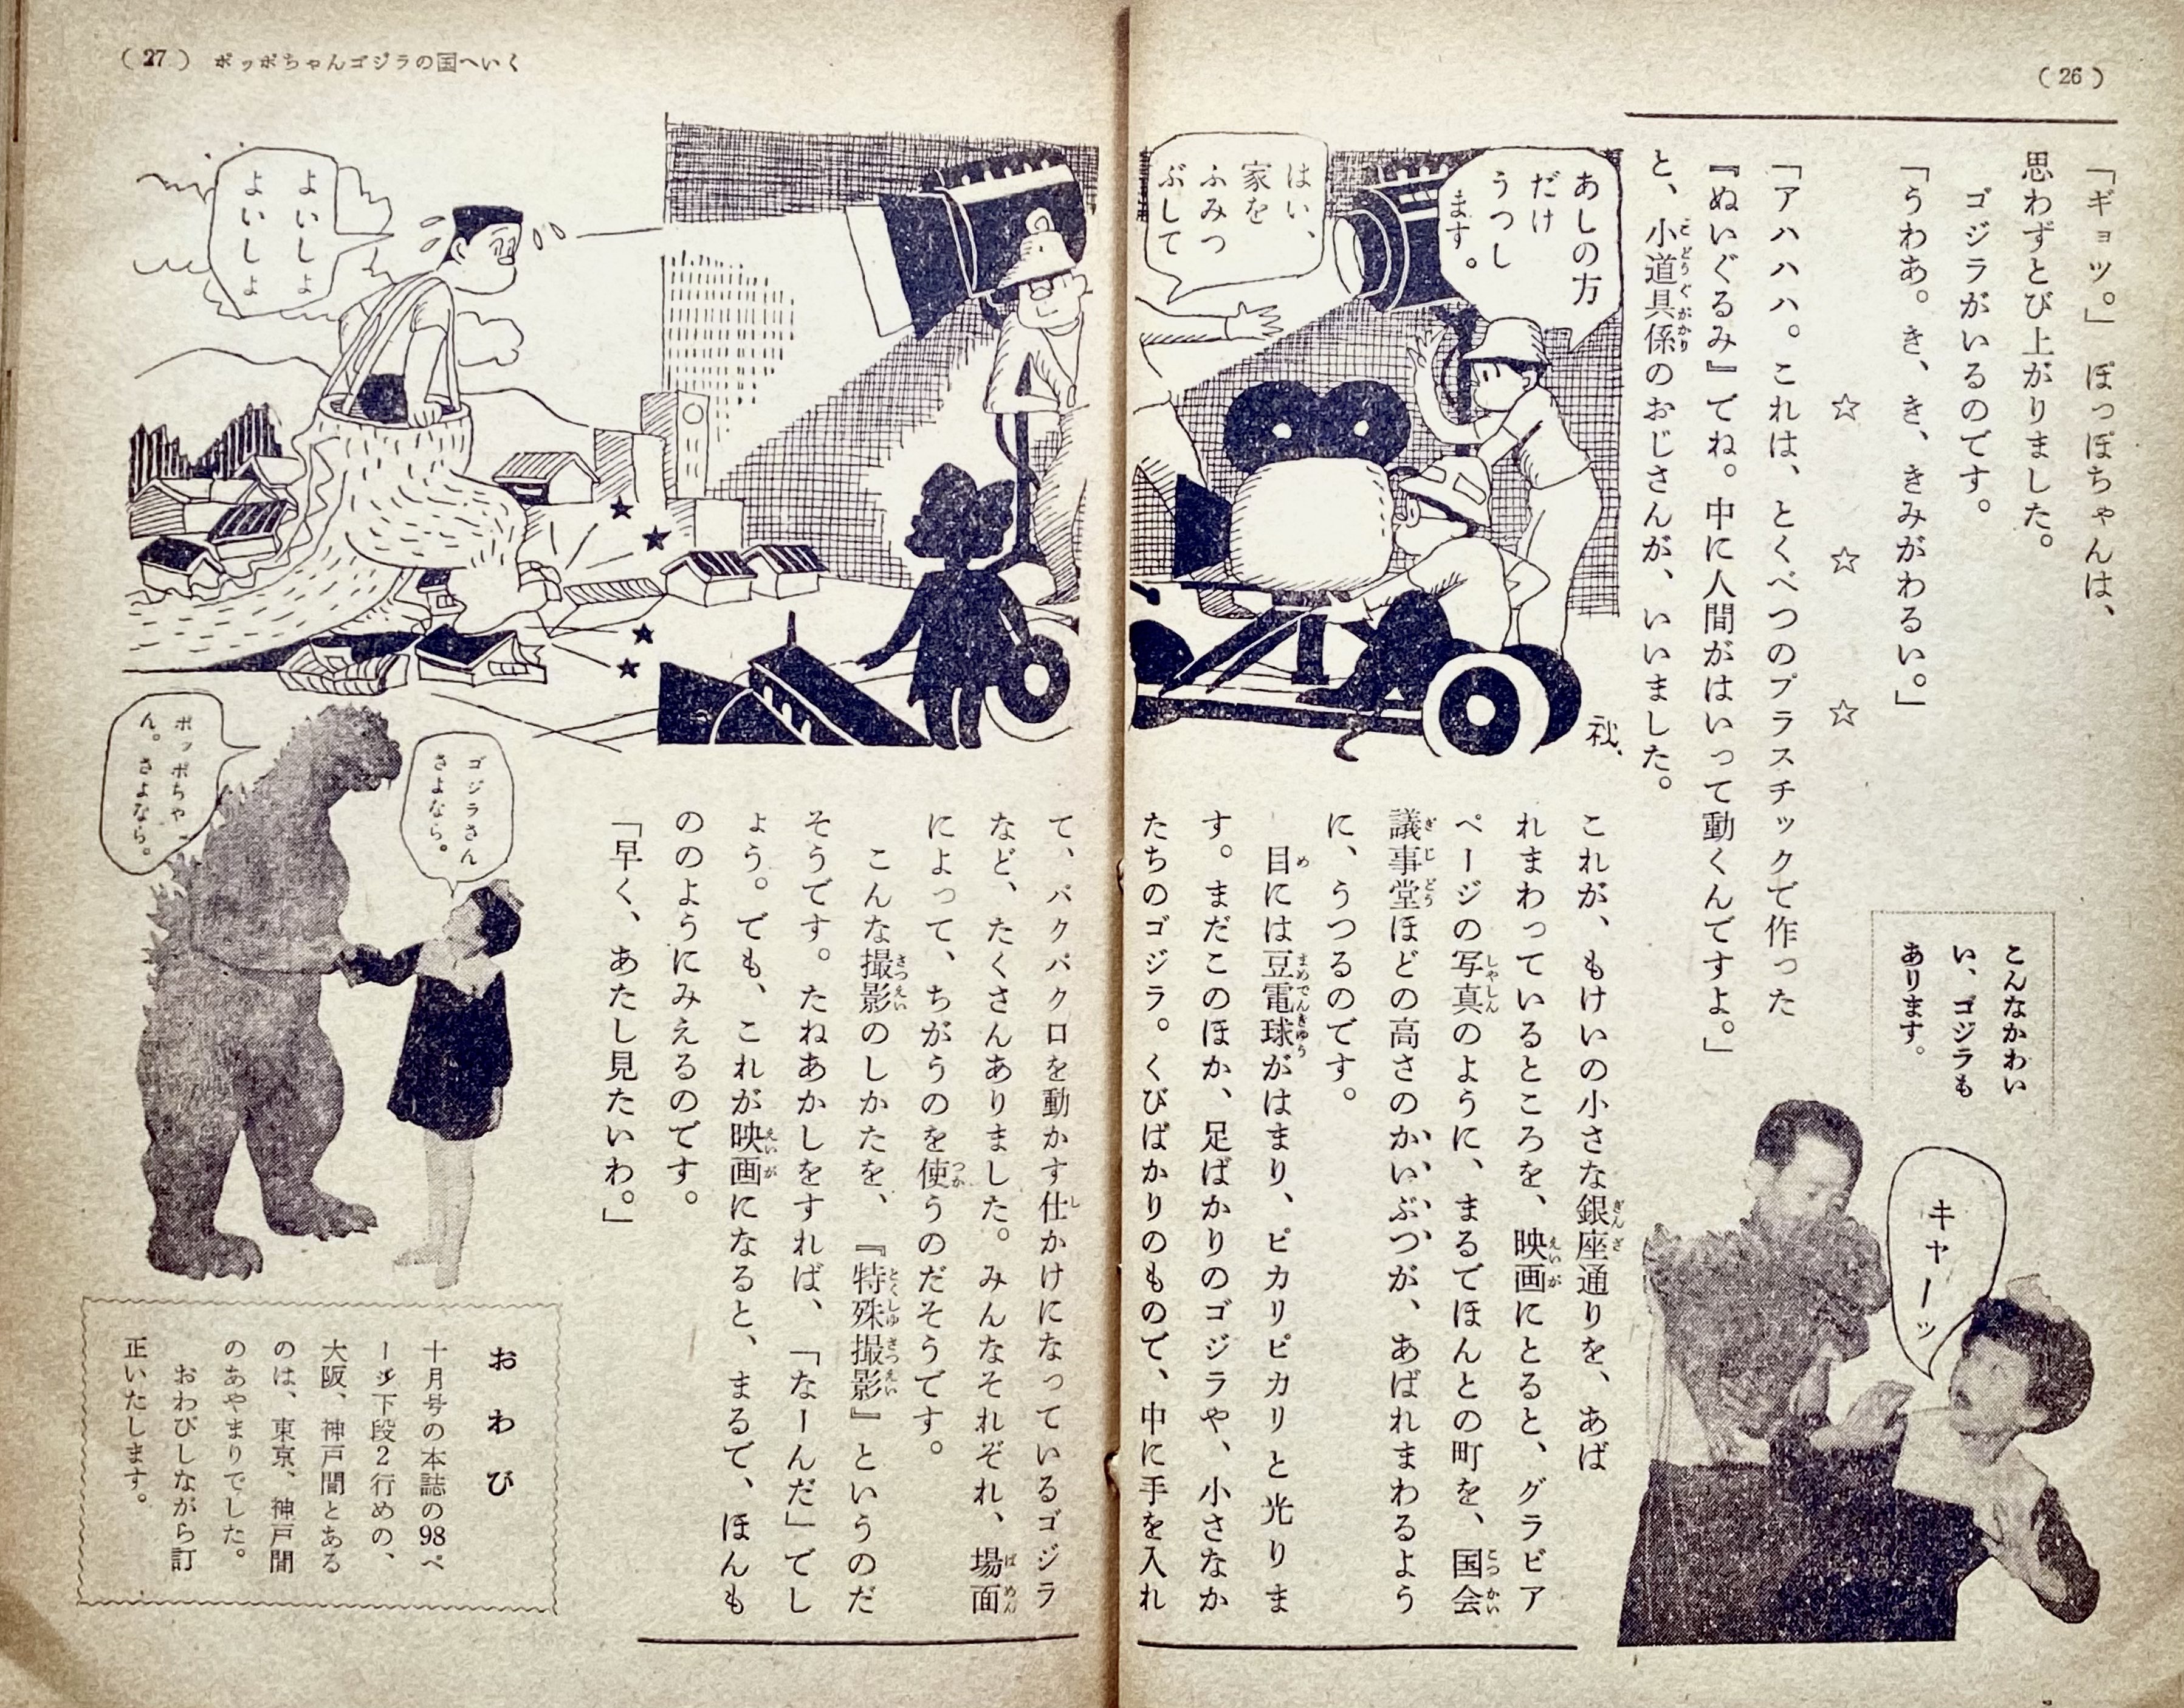 (26)
「ギョッ。」ぽっぽちゃんは、
思わずとび上がりました。
ゴジラがいるのです。
「うわあ。き、き、きみがわるい。」
☆ ☆ ☆
「アハハハ。これは、とくべつのプラスチックで作った
『ぬいぐるみ』でね。中に人間がはいって動くんですよ。」
と、小道具係のおじさんが、いいました。
こどうぐがかり
こんなかわい
い、ゴジラも
あります。
キャーッ
あしの方
だけ
うつし
ます。
はい、
家を
ふみつ
ぶして
秋、
これが、もけいの小さな銀座通りを、あば
ぎんざ
れまわっているところを、映画にとると、グラビア
えいが
ページの写真のように、まるでほんとの町を、国会
しゃしん
こっかい
議事堂ほどの高さのかいぶつが、あばれまわるよう
ぎじどう
に、うつるのです。
目には豆電球がはまり、ピカリピカリと光りま
め
まめでんきゅう
す。まだこのほか、足ばかりのゴジラや、小さなか
たちのゴジラ。くびばかりのもので、中に手を入れ
(27) ポッポちゃんゴジラの国へいく
よいしょ
よいしょ
て、パクパク口を動かす仕かけになっているゴジラ
し
など、たくさんありました。みんなそれぞれ、場面
ばめん
によって、ちがうのを使うのだそうです。
つか
こんな撮影のしかたを、『特殊撮影』というのだ
さつえい
とくしゅさつえい
そうです。たねあかしをすれば、「なーんだ」でし
ょう。でも、これが映画になると、まるで、ほんも
えいが
ののようにみえるのです。
「早く、あたし見たいわ。」
ゴジラさん
さよなら。
ポッポちゃ
ん。さよなら。
おわび
十月号の本誌の98ペ
ージ下段2行めの、
大阪、神戸間とある
のは、東京、神戸間
のあやまりでした。
おわびしながら訂
正いたします。